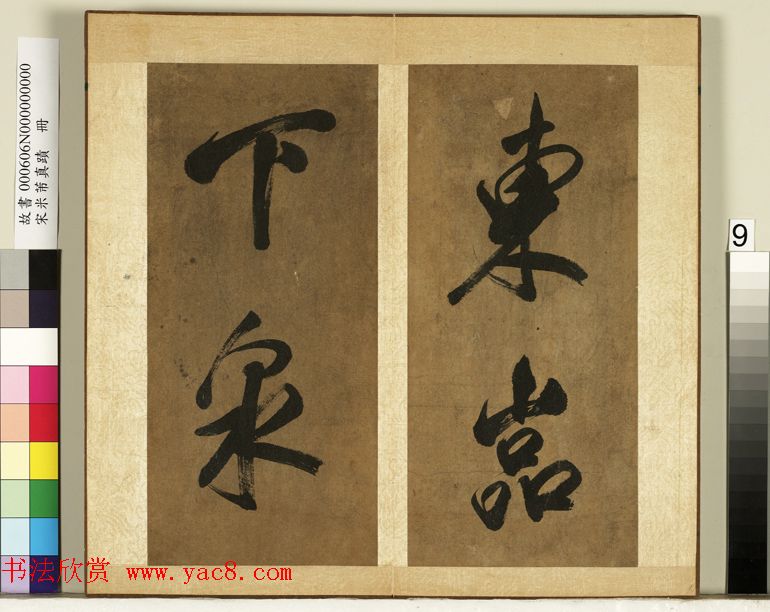 東嵒
下泉
故書 000606N000000000
宋米芾真蹟 冊
9
书法欣赏 www.yac8.com